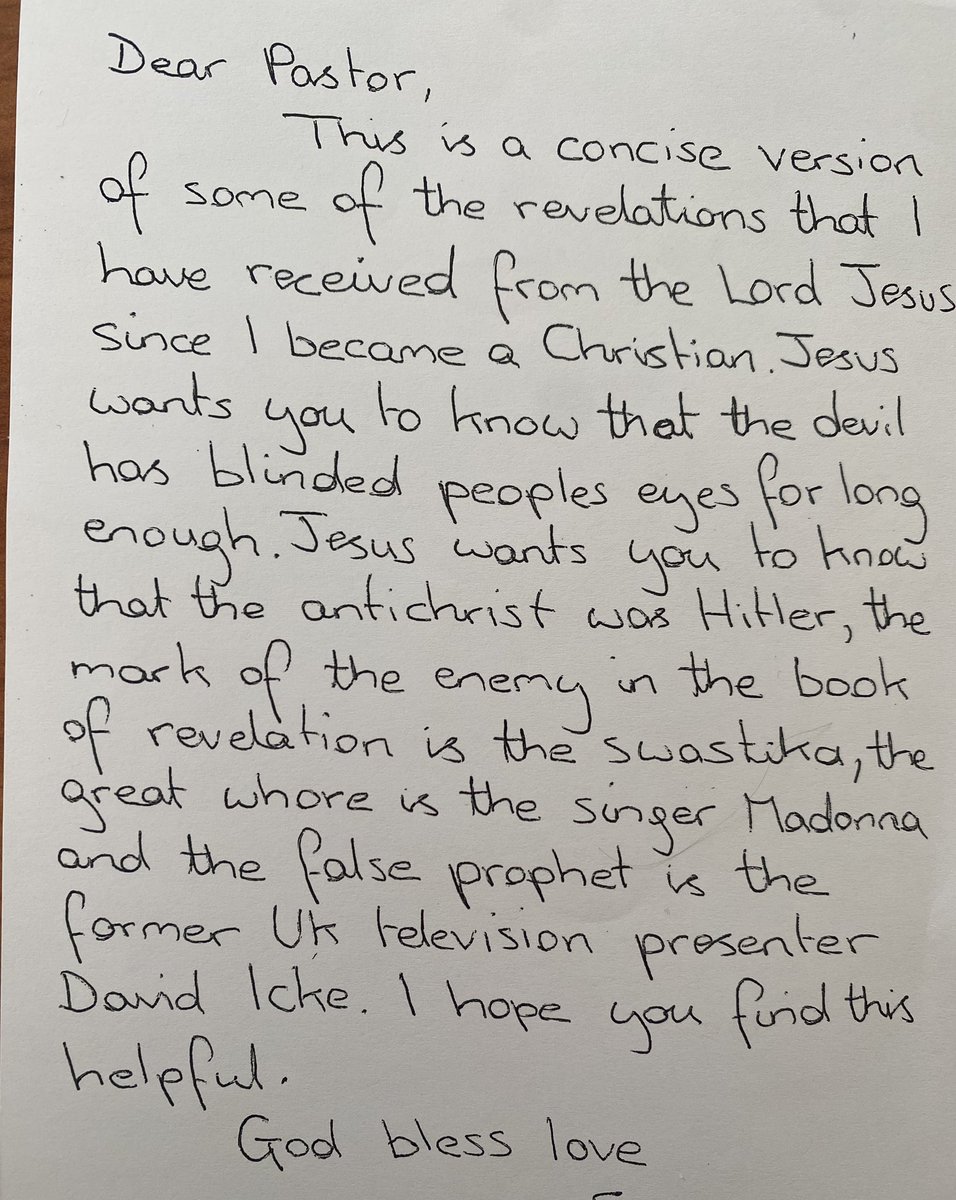 Dear Pastor,
This is a concise version
of some of the revelations that I
have received from the Lord Jesus
since I became a Christian. Jesus
wants you to know that the devil
has blinded peoples eyes for long
enough. Jesus wants you to know
that the antichrist was Hitler, the
mark of the enemy in the book
of revelation is the swastika, the
great whore is the singer Madonna
and the false prophet is the
former UK television presenter
David Icke. I hope you find this
helpful.
God bless love